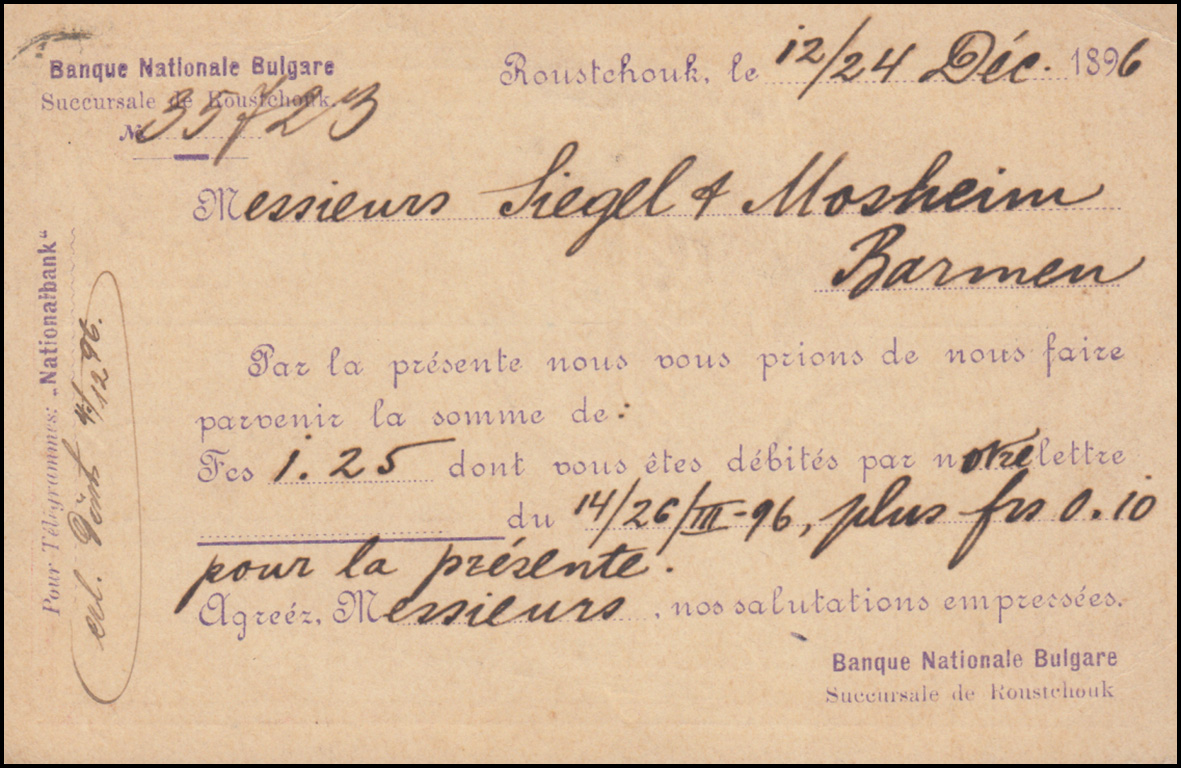 Banque Nationale Bulgare
Succursale de Roustchouk.
№ 35723
Roustchouk, le 12/24 Déc. 1896
Messieurs Siegel & Mosheim
Barmen
Par la présente nous vous prions de nous faire
parvenir la somme de:
Fcs 1.25 dont vous êtes débités par notre lettre
du 14/26/III-96, plus frs 0.10
pour la présente.
Agreéz, Messieurs, nos salutations empressées.
Banque Nationale Bulgare
Succursale de Roustchouk
Pour Télégrammes: „Nationalbank“
12 96.